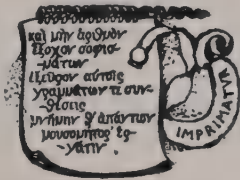 καὶ μὴν ἀριθμὸν
ἔξοχον σοφισ-
-μάτων
ἐξεῦρον αὐτοῖς
γραμμάτων τε συν-
θέσεις
μνήμην θ' ἁπάντων
μουσομήτορ' ἐρ-
γάτιν.
IMPRIMATVR